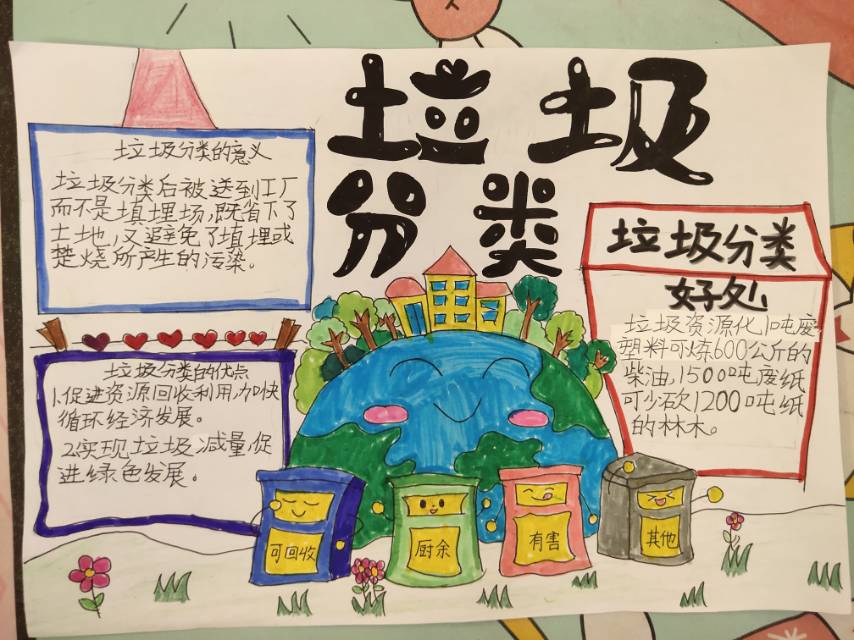 垃圾
分类
垃圾分类的意义
垃圾分类后被送到工厂
而不是填埋场,既省下了
土地,又避免了填埋或
焚烧所产生的污染。
垃圾分类的优点
1.促进资源回收利用,加快
循环经济发展。
2.实现垃圾减量,促
进绿色发展。
垃圾分类
好处
垃圾资源化,1吨废
塑料可炼600公斤的
柴油,1500吨废纸
可少砍1200吨纸
的林木。
可回收
厨余
有害
其他